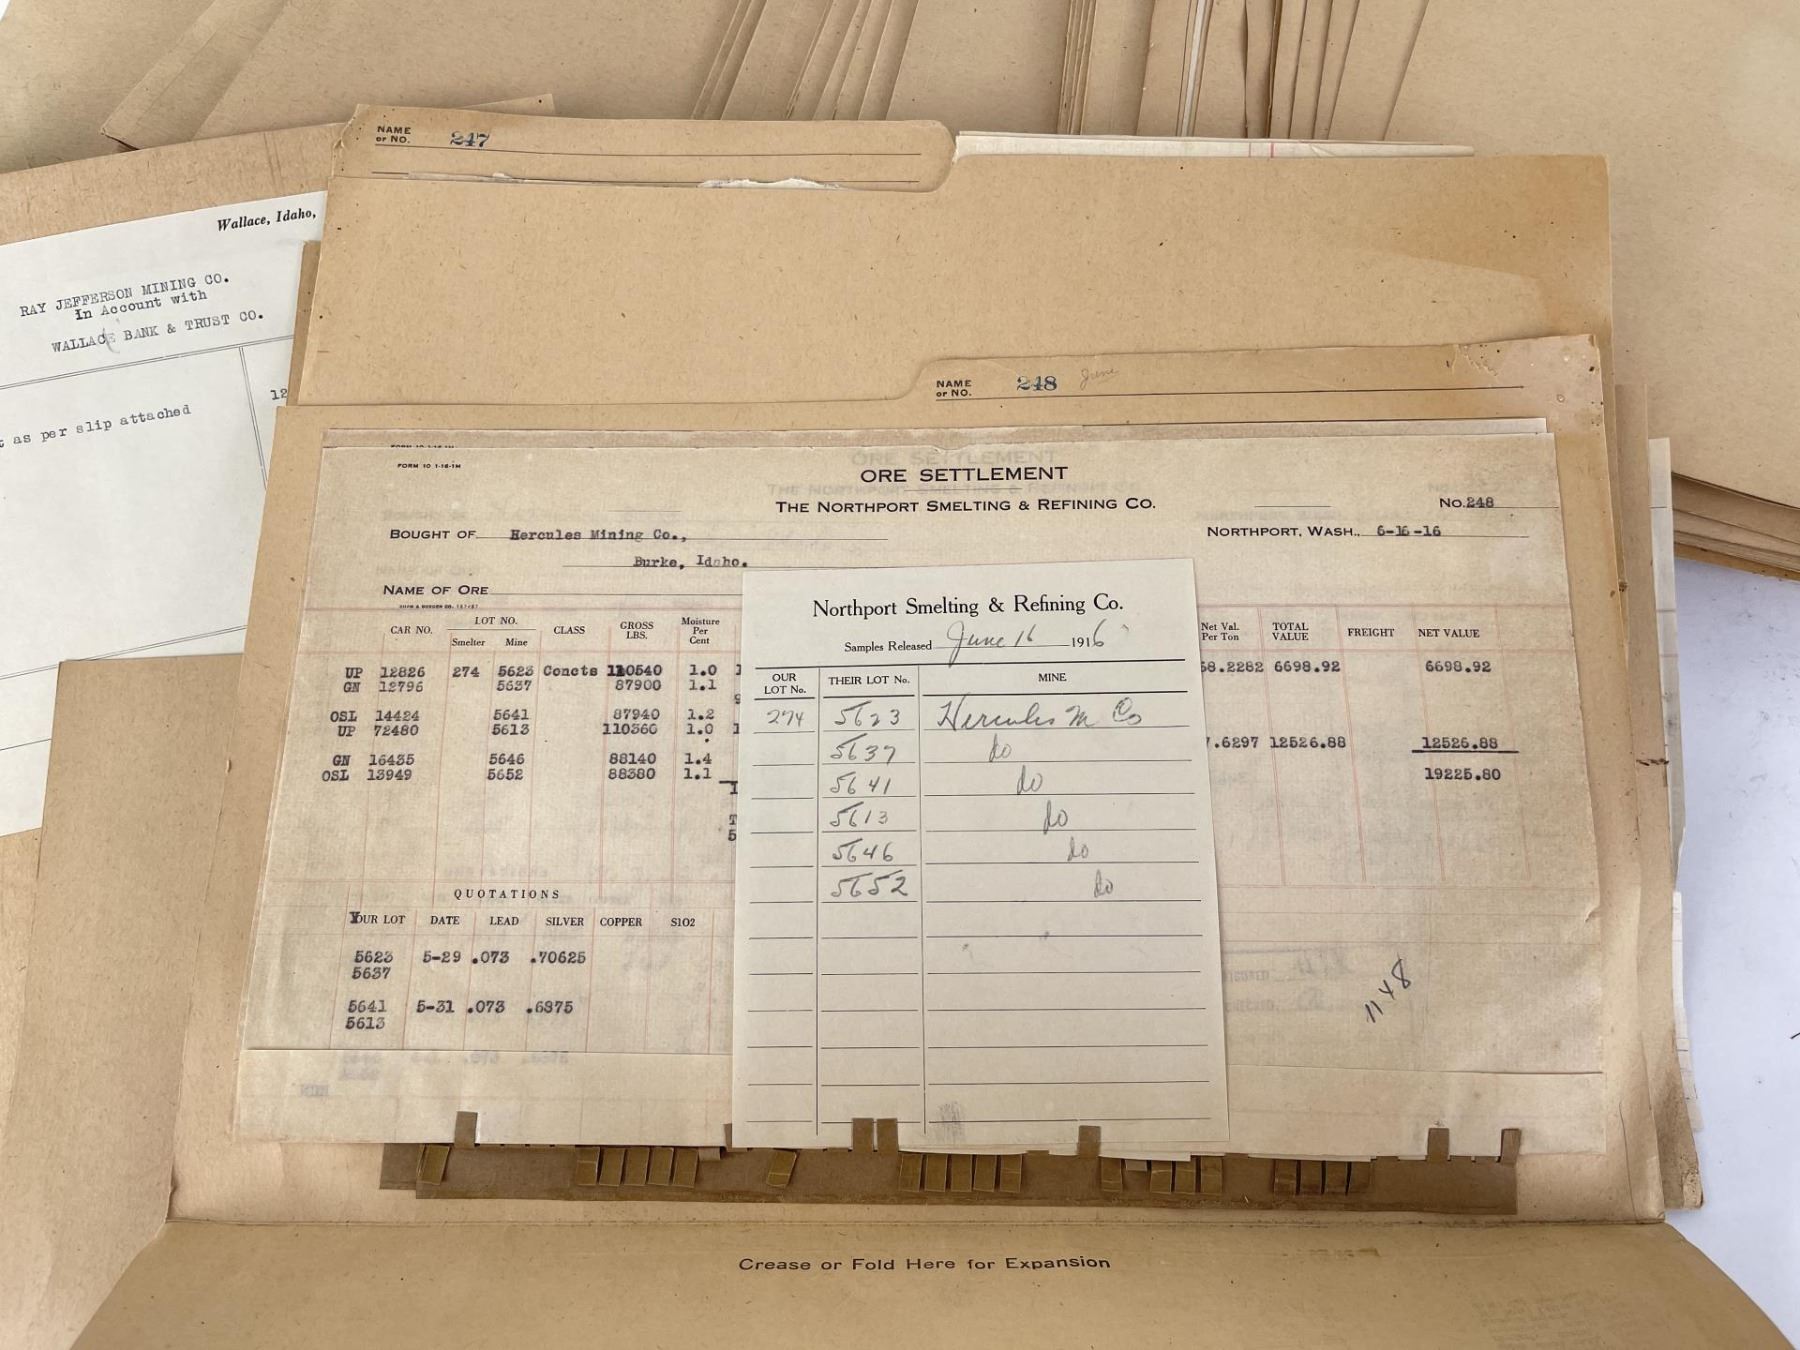 NAME
or NO. 247
Wallace, Idaho,
RAY JEFFERSON MINING CO.
In Account with
WALLACE BANK & TRUST CO.
12
as per slip attached
NAME
or NO. 248 June
FORM 10 1-16-1M
FORM 10 1-16-1M
ORE SETTLEMENT
THE NORTHPORT SMELTING & REFINING CO.
No. 248
BOUGHT OF Hercules Mining Co.,
NORTHPORT, WASH., 6-16-16
Burke, Idaho.
NAME OF ORE
CAR NO. LOT NO. Smelter Mine CLASS GROSS LBS. Moisture Per Cent Net Val. Per Ton TOTAL VALUE FREIGHT NET VALUE
UP 12826 274 5623 Concts 110540 1.0 68.2282 6698.92 6698.92
GN 12796 5637 87900 1.1
OSL 14424 5641 87940 1.2
UP 72480 5613 110360 1.0 .6297 12526.88 12526.88
GN 16435 5646 88140 1.4
OSL 13949 5652 88380 1.1 19225.80
QUOTATIONS
YOUR LOT DATE LEAD SILVER COPPER SIO2
5623 5-29 .073 .70625
5637
5641 5-31 .073 .6875
5613
11 x 8
Northport Smelting & Refining Co.
Samples Released June 16 1916
OUR LOT No. THEIR LOT No. MINE
274 5623 Hercules M Co
5637 do
5641 do
5613 do
5646 do
5652 do
Crease or Fold Here for Expansion